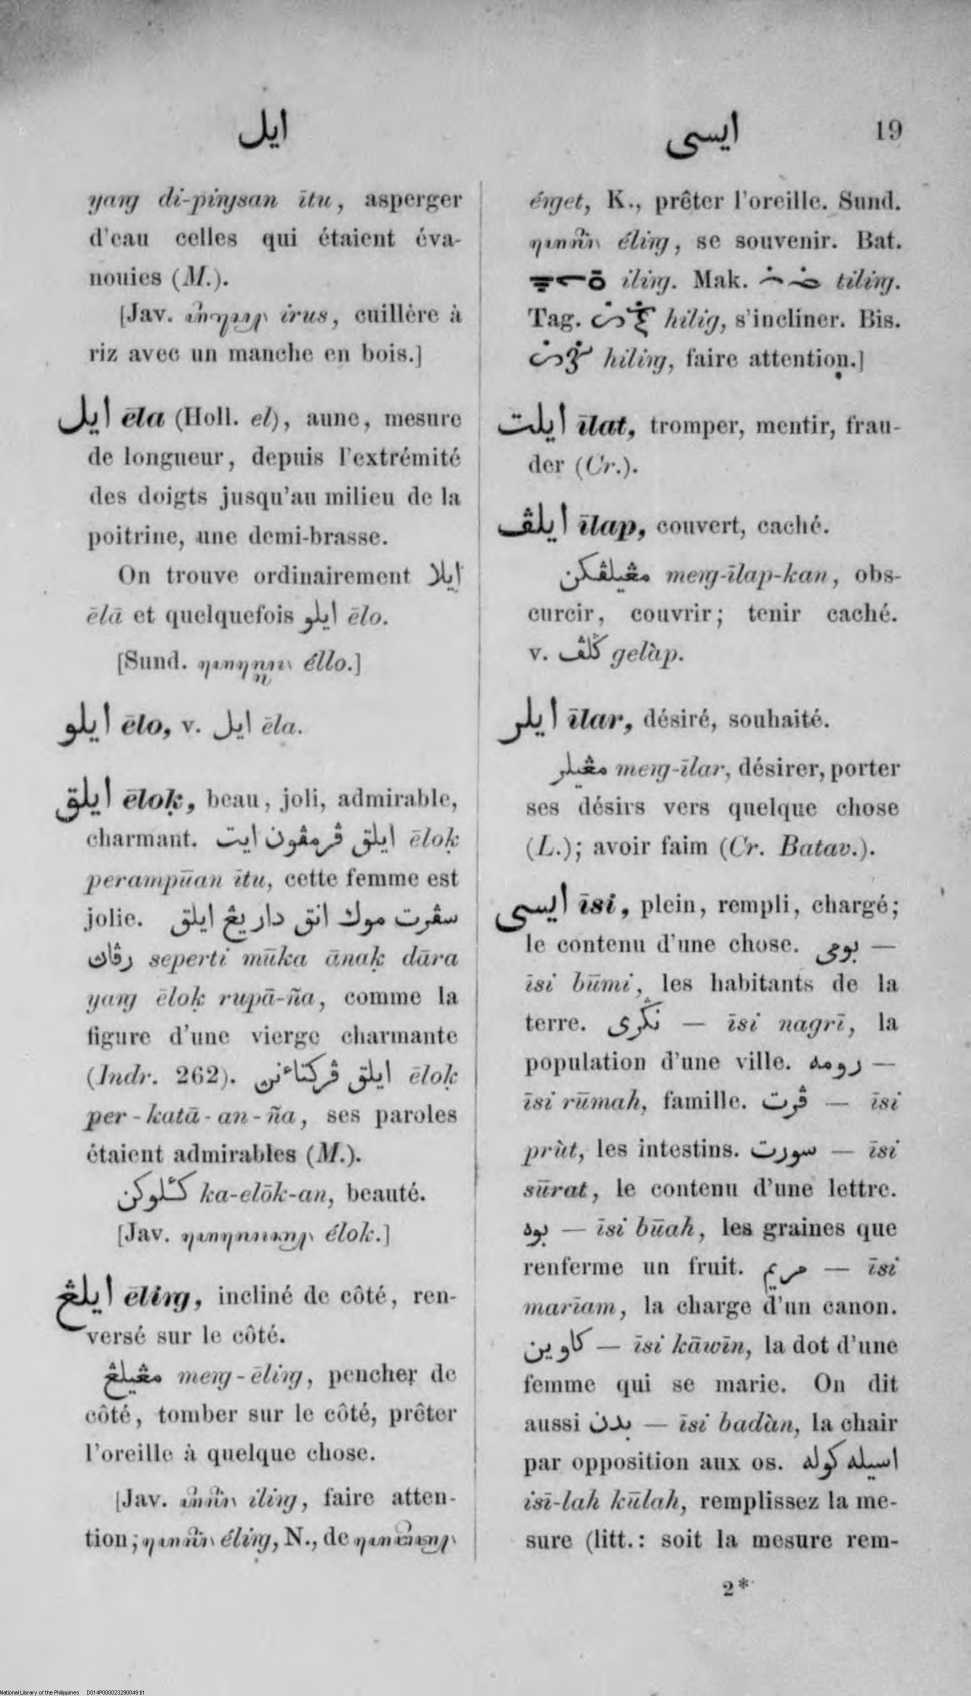 ايل
ايسي
19
yaṅg di-piṅgsan ītu, asperger
d'eau celles qui étaient éva-
nouies (M.).
[Jav. irus, cuillère à
riz avec un manche en bois.]
ايل ēla (Holl. el), aune, mesure
de longueur, depuis l'extrémité
des doigts jusqu'au milieu de la
poitrine, une demi-brasse.
On trouve ordinairement ايلا
ēlā et quelquefois ايلو ēlo.
[Sund. éllo.]
ايلو ēlo, v. ايل ēla.
ايلق ēloḳ, beau, joli, admirable,
charmant. ايلق ڤرمڤون ايت ēloḳ
perampūan ītu, cette femme est
jolie. سڤرت موك انق دار يڠ ايلق
seperti mūka ānaḳ dāra
yaṅg ēloḳ rupā-ña, comme la
figure d'une vierge charmante
(Indr. 262). ايلق ڤركتاءنن ēloḳ
per-katā-an-ña, ses paroles
étaient admirables (M.).
ka-elōk-an, beauté.
[Jav. élok.]
ايلڠ ēliṅg, incliné de côté, ren-
versé sur le côté.
مڠيلڠ meṅg-ēliṅg, pencher de
côté, tomber sur le côté, prêter
l'oreille à quelque chose.
[Jav. iliṅg, faire atten-
tion; éliṅg, N., de
éṅget, K., prêter l'oreille. Sund.
éliṅg, se souvenir. Bat.
iliṅg. Mak. tiliṅg.
Tag. hilig, s'incliner. Bis.
hiliṅg, faire attention.]
ايلت īlat, tromper, mentir, frau-
der (Cr.).
ايلڤ īlap, couvert, caché.
مڠيلڤكن meṅg-īlap-kan, obs-
curcir, couvrir; tenir caché.
v. ݢلڤ gelàp.
ايلر īlar, désiré, souhaité.
مڠيلر meṅg-īlar, désirer, porter
ses désirs vers quelque chose
(L.); avoir faim (Cr. Batav.).
ايسي īsi, plein, rempli, chargé;
le contenu d'une chose. بومي —
īsi būmi, les habitants de la
terre. نݢري — īsi nagrī, la
population d'une ville. رومه —
īsi rūmah, famille. ڤرت — īsi
prùt, les intestins. سورت — īsi
sūrat, le contenu d'une lettre.
بوه — īsi būah, les graines que
renferme un fruit. مريم — īsi
marīam, la charge d'un canon.
كاوين — īsi kāwīn, la dot d'une
femme qui se marie. On dit
aussi بدن — īsi badàn, la chair
par opposition aux os. اسيله كوله
isī-lah kūlah, remplissez la me-
sure (litt.: soit la mesure rem-
2*
National Library of the Philippines